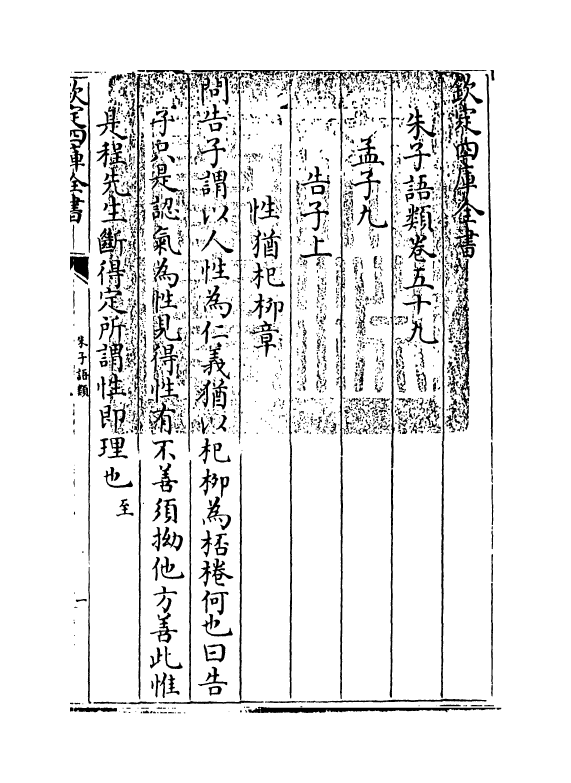 欽定四庫全書
朱子語類卷五十九
孟子九
告子上
性猶杞柳章
問告子謂以人性為仁義猶以杞柳為桮棬何也曰告
子只是認氣為性見得性有不善須拗他方善此惟
是程先生斷得定所謂性即理也至
欽定四庫全書
朱子語類
一